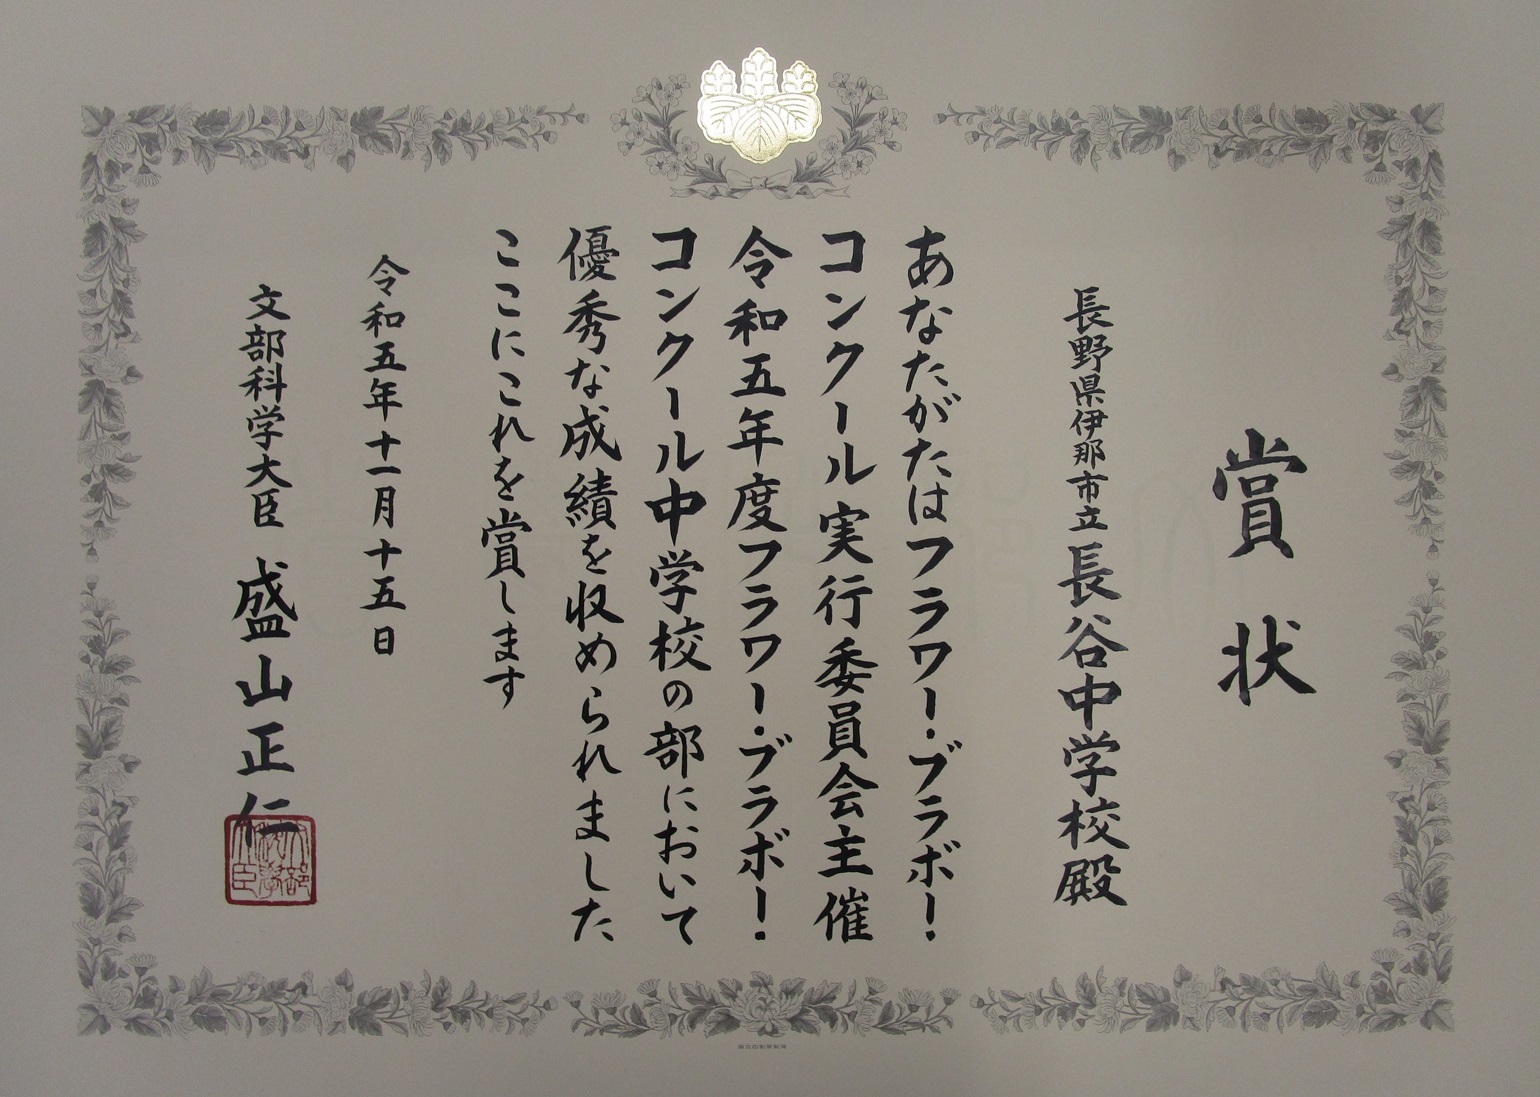 賞状
長野県伊那市立長谷中学校殿
あなたがたはフラワー・ブラボー！
コンクール実行委員会主催
令和五年度フラワー・ブラボー！
コンクール中学校の部において
優秀な成績を収められました
ここにこれを賞します
令和五年十一月十五日
文部科学大臣 盛山正仁